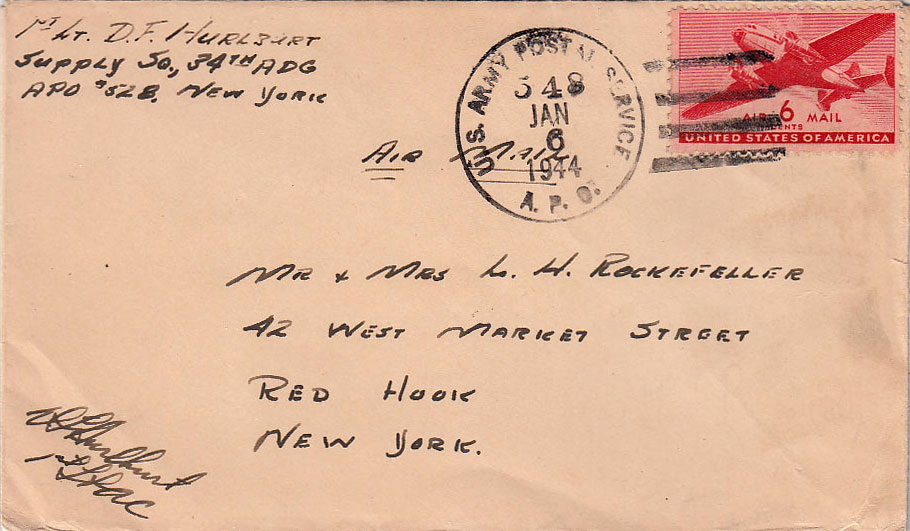 1ST LT. D.F. HURLBURT
SUPPLY SQ., 34TH ADG
APO #528, NEW YORK
U.S. ARMY POSTAL SERVICE
548
JAN
6
1944
A. P. O.
AIR 6 MAIL
CENTS
UNITED STATES OF AMERICA
AIR MAIL
MR & MRS L. W. ROCKEFELLER
42 WEST MARKET STREET
RED HOOK
NEW YORK.
DFHurlburt
1st Lt AC